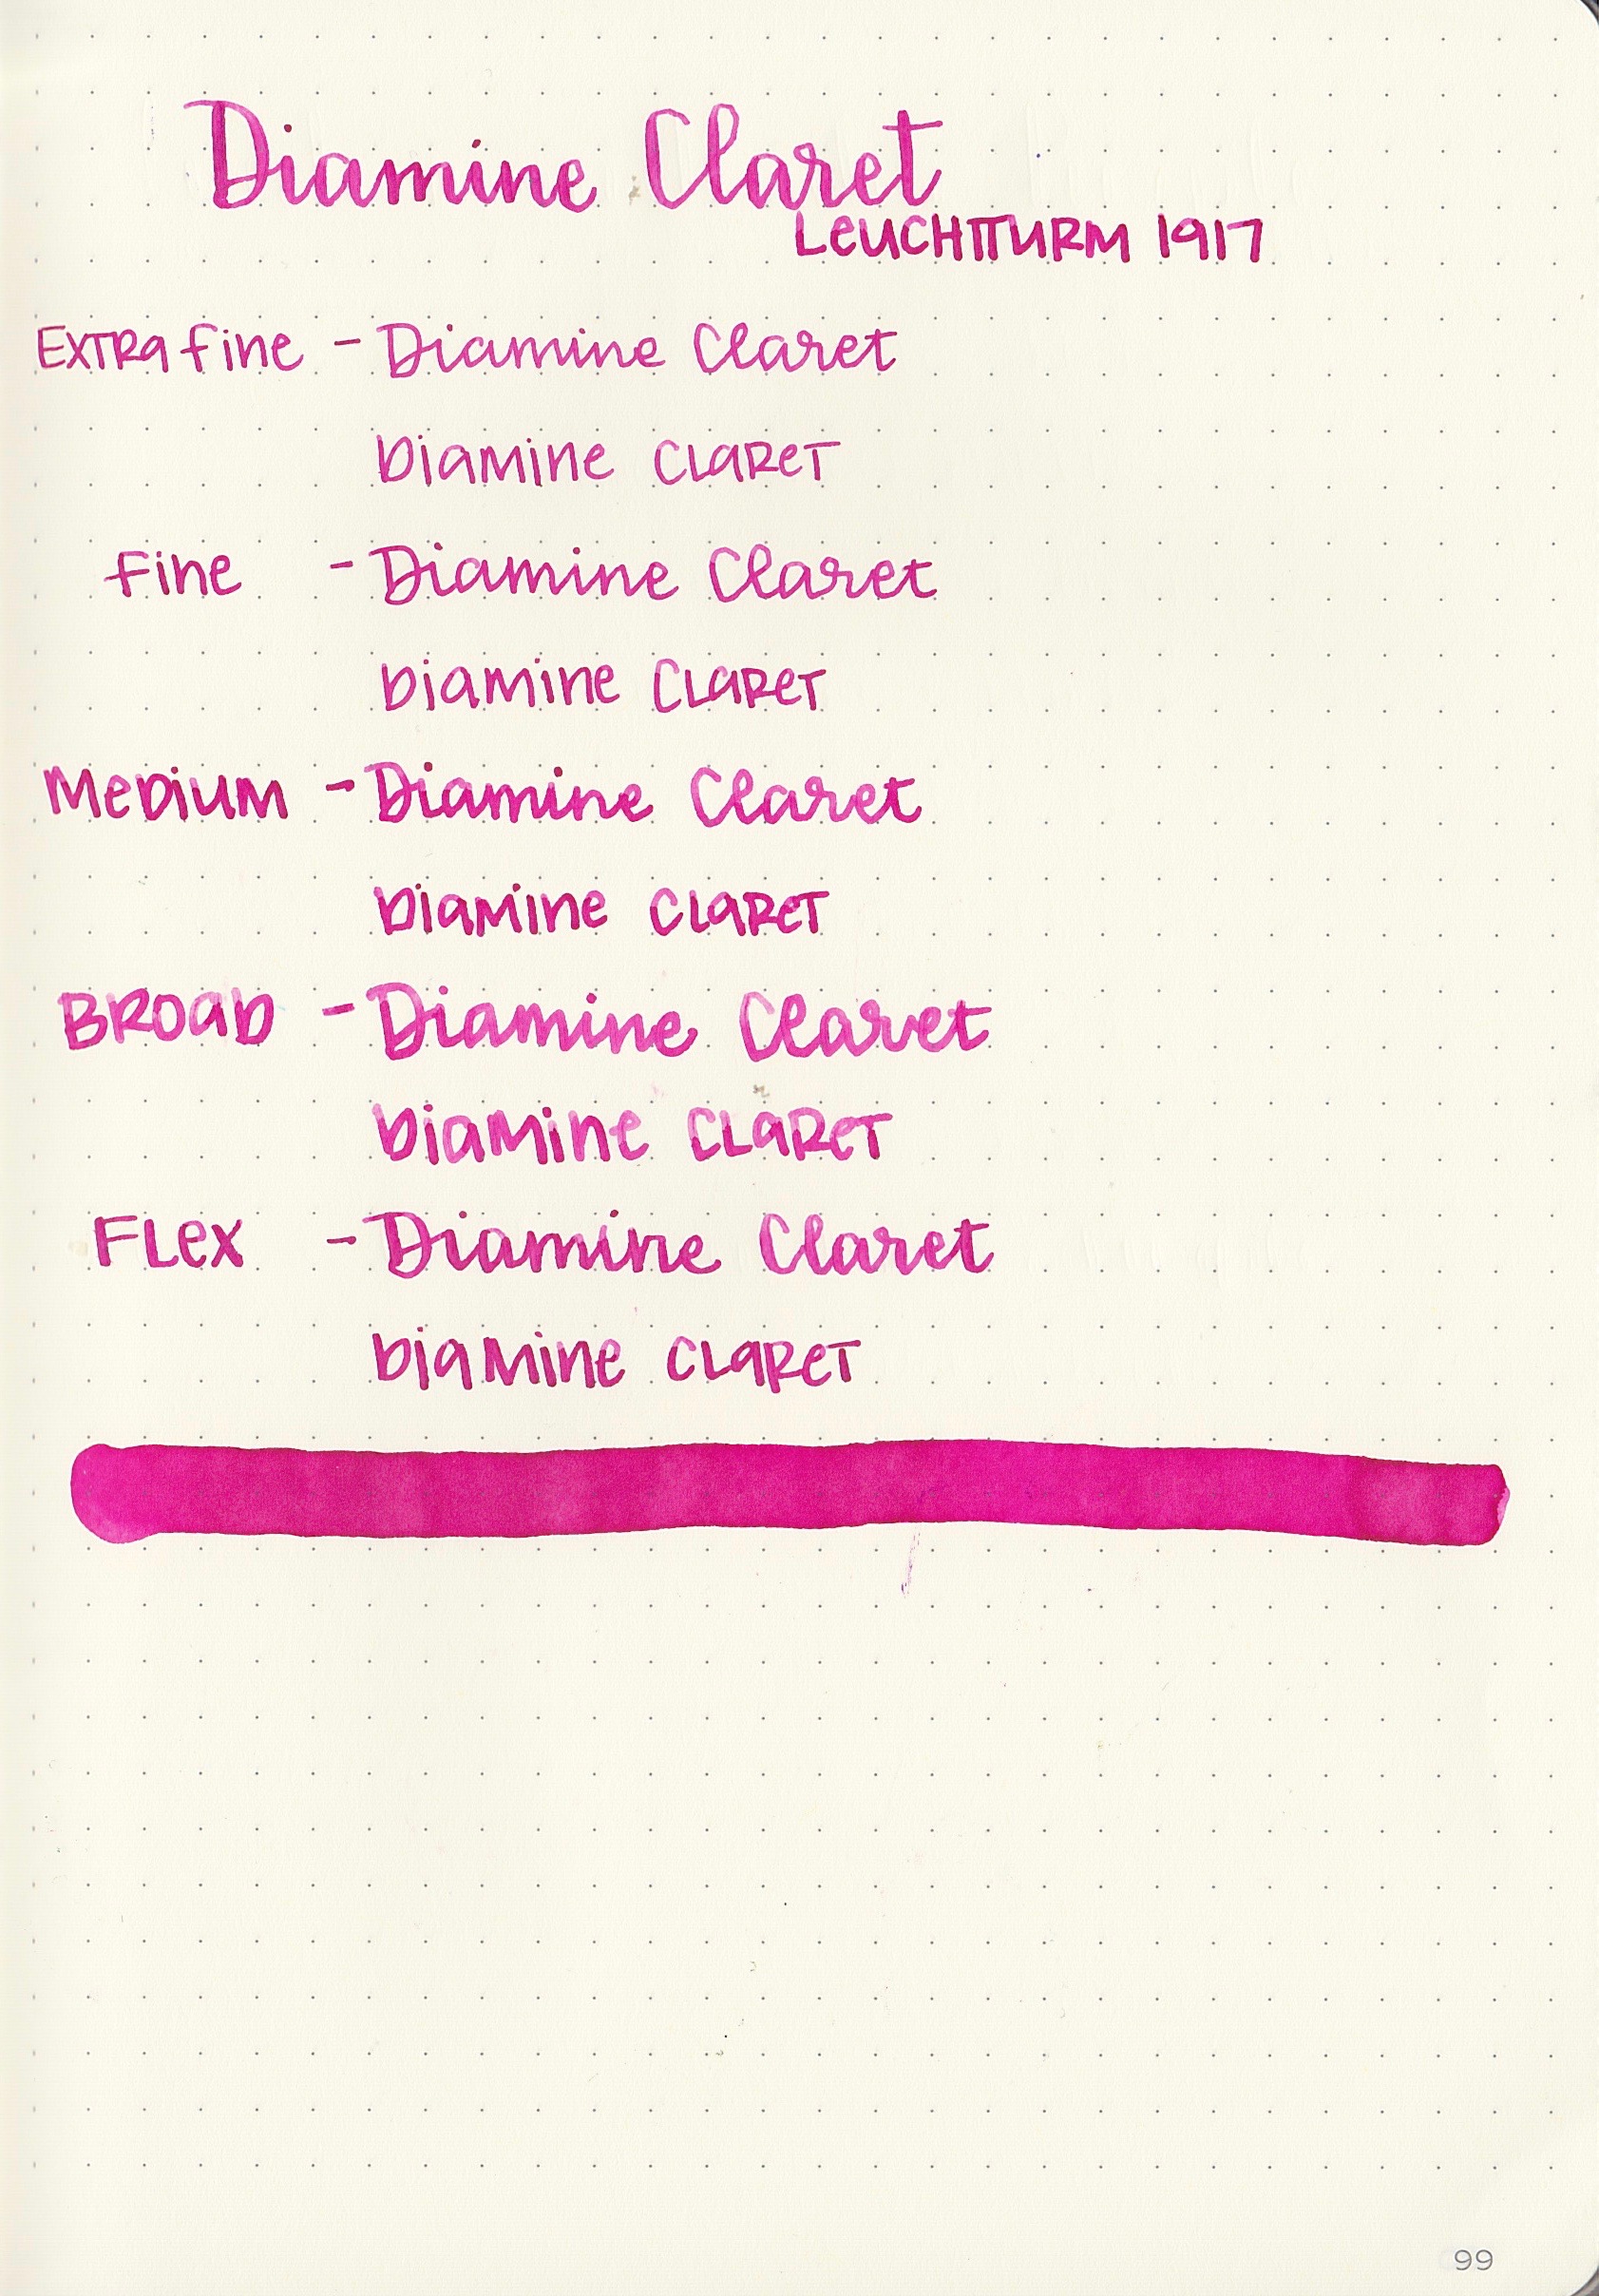 Diamine Claret
LEUCHTTURM 1917
EXTRA fine - Diamine Claret
Diamine CLARET
fine - Diamine Claret
Diamine CLARET
MeDiuM - Diamine Claret
Diamine CLARET
BROAD - Diamine Claret
Diamine CLARET
FLex - Diamine Claret
Diamine CLARET
99